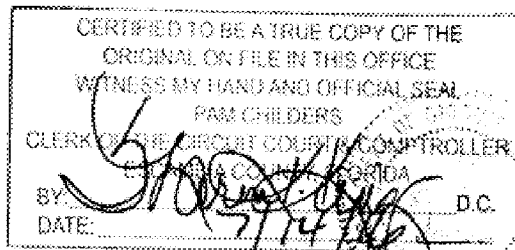 CERTIFIED TO BE A TRUE COPY OF THE
ORIGINAL ON FILE IN THIS OFFICE
WITNESS MY HAND AND OFFICIAL SEAL
PAM CHILDERS
CLERK OF THE CIRCUIT COURT & COMPTROLLER
COUNTY FLORIDA
BY: D.C.
DATE: 7/14